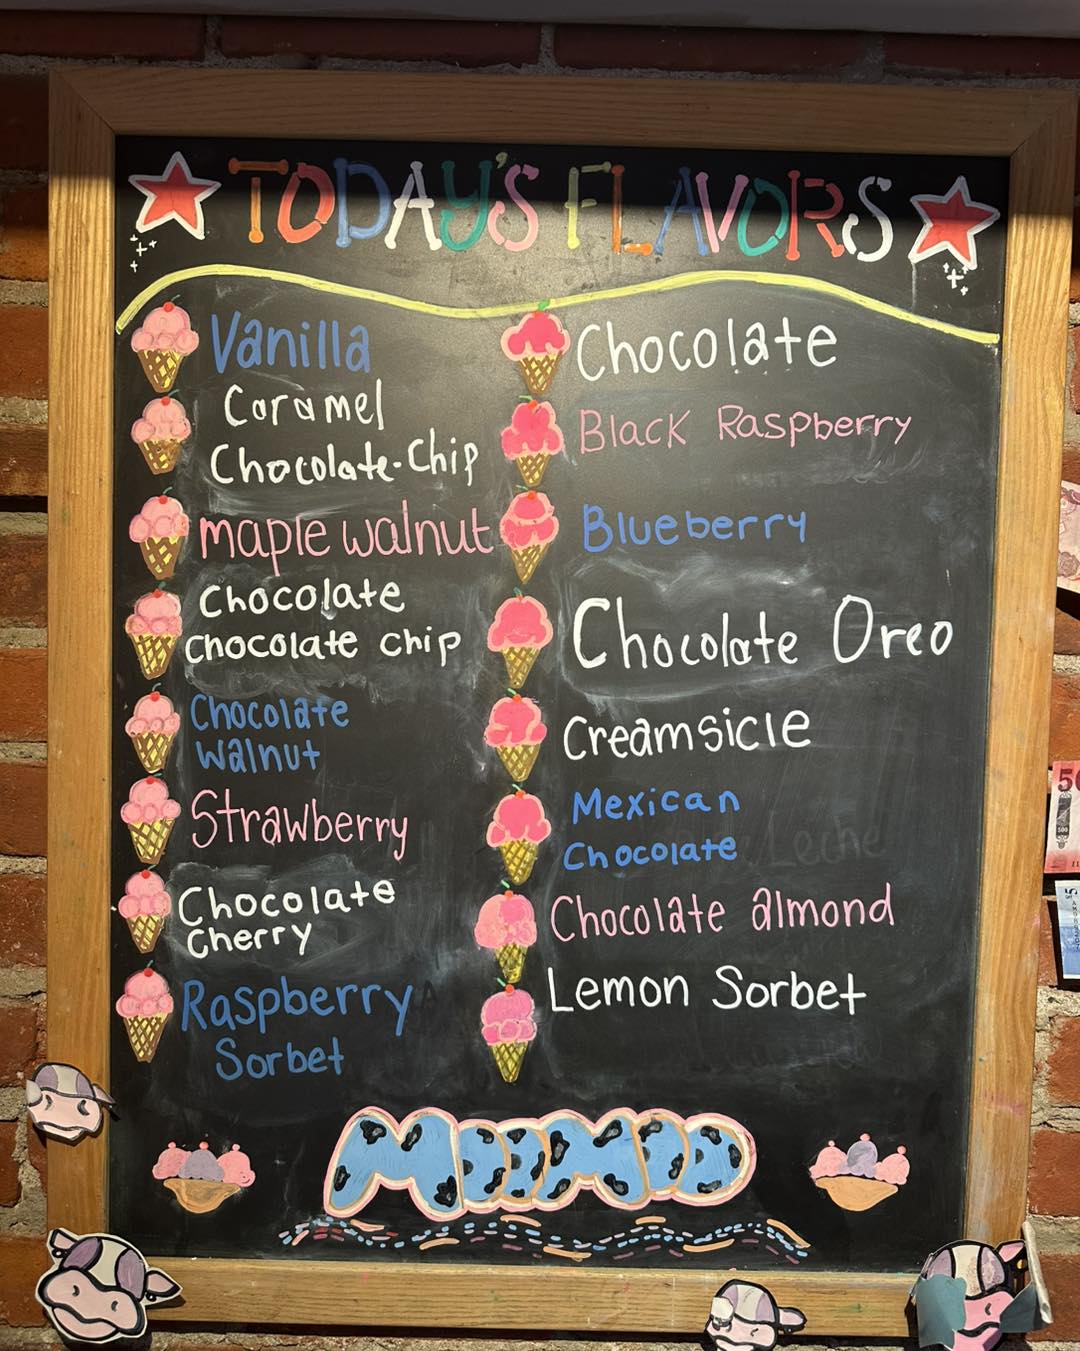 TODAY'S FLAVORS
Vanilla
Caramel
Chocolate-Chip
maple walnut
Chocolate
Chocolate chip
Chocolate
walnut
Strawberry
Chocolate
Cherry
Raspberry
Sorbet
Chocolate
Black Raspberry
Blueberry
Chocolate Oreo
Creamsicle
Mexican
Chocolate
Leche
Chocolate almond
Lemon Sorbet
MOOMOO
50